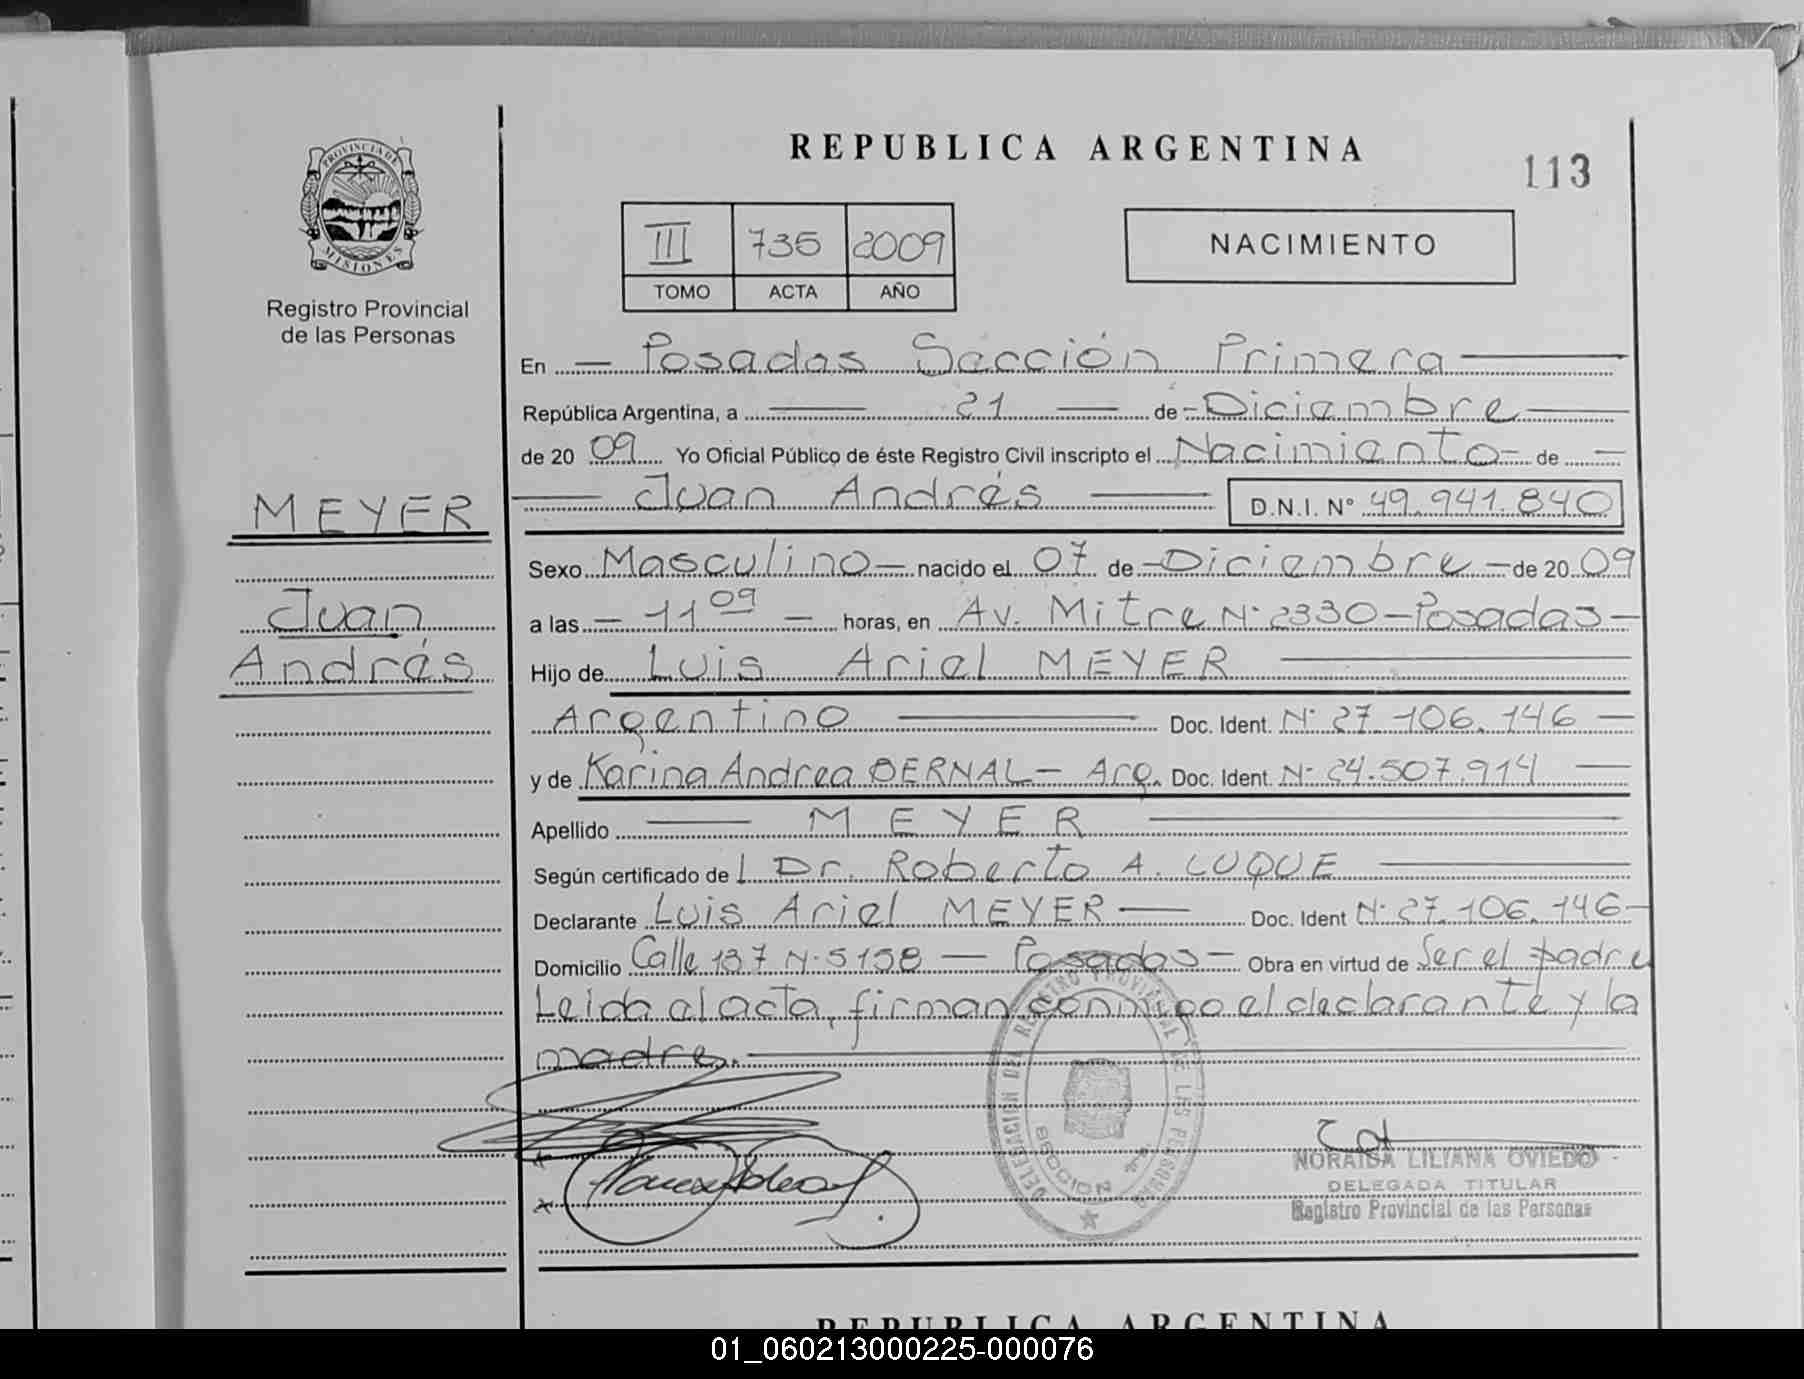 REPUBLICA ARGENTINA
113
PROVINCIA DE
MISIONES
Registro Provincial
de las Personas
III 735 2009
TOMO ACTA AÑO
NACIMIENTO
En Posadas Sección Primera
República Argentina, a 21 de Diciembre
de 20 09 Yo Oficial Público de éste Registro Civil inscripto el Nacimiento de
Juan Andrés D.N.I. Nº 49.941.840
MEYER
Juan
Andrés
Sexo Masculino nacido el 07 de Diciembre de 20 09
a las 11 09 horas, en Av. Mitre Nº 2330 - Posadas
Hijo de Luis Ariel MEYER
Argentino Doc. Ident. Nº 27.106.146
y de Karina Andrea BERNAL - Arg. Doc. Ident. Nº 24.507.914
Apellido MEYER
Según certificado de Dr. Roberto A. LUQUE
Declarante Luis Ariel MEYER Doc. Ident Nº 27.106.146
Domicilio Calle 137 Nº 5158 - Posadas - Obra en virtud de Ser el padre
Leida el acta, firman conmigo el declarante y la
madre.
DELEGACION DEL REGISTRO PROVINCIAL DE LAS PERSONAS
SECCION 1ra
NORAIDA LILIANA OVIEDO
DELEGADA TITULAR
Registro Provincial de las Personas
REPUBLICA ARGENTINA
01_060213000225-000076